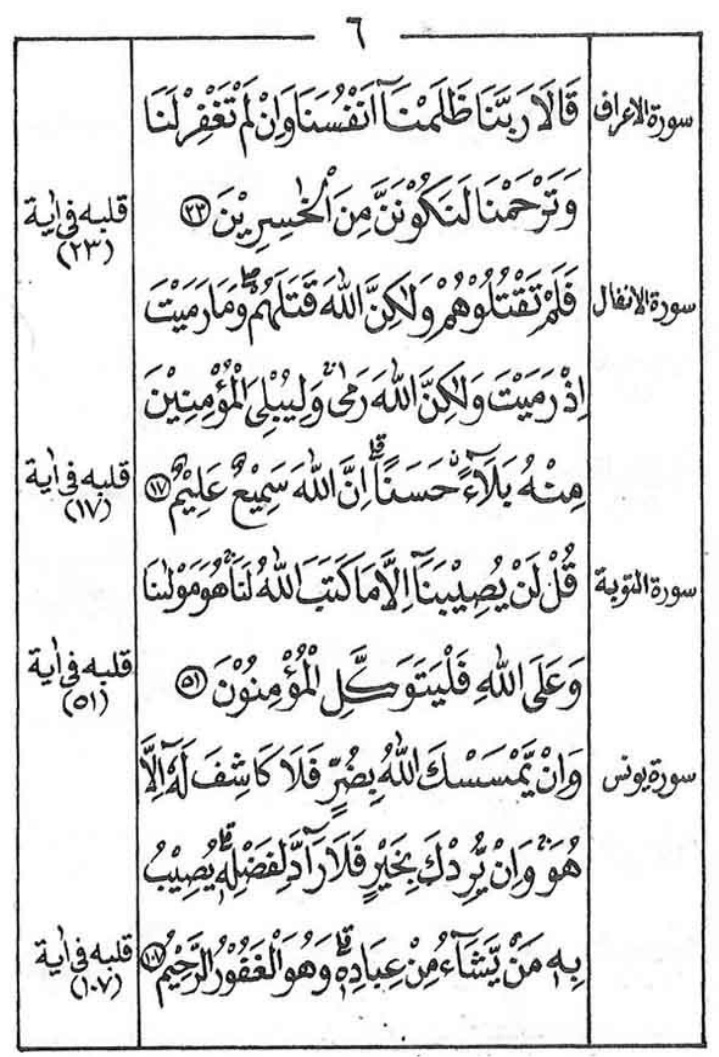 ٦
سورة الاعراف
قَالَا رَبَّنَا ظَلَمْنَآ اَنْفُسَنَا وَاِنْ لَّمْ تَغْفِرْ لَنَا
وَتَرْحَمْنَا لَنَكُوْنَنَّ مِنَ الْخٰسِرِيْنَ ۝٢٣
قلبه فى اٰية
(٢٣)
سورة الانفال
فَلَمْ تَقْتُلُوْهُمْ وَلٰكِنَّ اللّٰهَ قَتَلَهُمْ ۖ وَمَا رَمَيْتَ
اِذْ رَمَيْتَ وَلٰكِنَّ اللّٰهَ رَمٰى ۚ وَلِيُبْلِىَ الْمُؤْمِنِيْنَ
مِنْهُ بَلَآءً حَسَنًا ۗ اِنَّ اللّٰهَ سَمِيْعٌ عَلِيْمٌ ۝١٧
قلبه فى اٰية
(١٧)
سورة التوبة
قُلْ لَنْ يُصِيْبَنَآ اِلَّا مَا كَتَبَ اللّٰهُ لَنَا ۚ هُوَ مَوْلٰىنَا
وَعَلَى اللّٰهِ فَلْيَتَوَكَّلِ الْمُؤْمِنُوْنَ ۝٥١
قلبه فى اٰية
(٥١)
سورة يونس
وَاِنْ يَّمْسَسْكَ اللّٰهُ بِضُرٍّ فَلَا كَاشِفَ لَهٗٓ اِلَّا
هُوَ ۚ وَاِنْ يُّرِدْكَ بِخَيْرٍ فَلَا رَآدَّ لِفَضْلِهٖ ۗ يُصِيْبُ
بِهٖ مَنْ يَّشَآءُ مِنْ عِبَادِهٖ ۗ وَهُوَ الْغَفُوْرُ الرَّحِيْمُ ۝١٠٧
قلبه فى اٰية
(١٠٧)